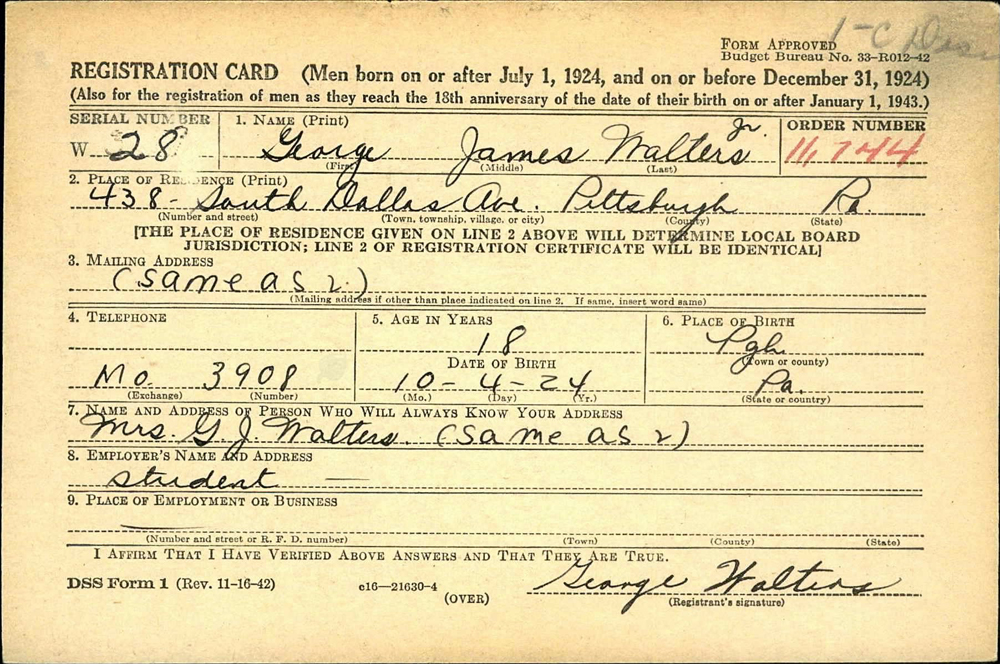 1-C
FORM APPROVED
Budget Bureau No. 33-R012-42
REGISTRATION CARD (Men born on or after July 1, 1924, and on or before December 31, 1924)
(Also for the registration of men as they reach the 18th anniversary of the date of their birth on or after January 1, 1943.)
SERIAL NUMBER 1. NAME (Print) ORDER NUMBER
W 28 George James Walters Jr. 11,744
(First) (Middle) (Last)
2. PLACE OF RESIDENCE (Print)
438- South Dallas Ave. Pittsburgh Pa.
(Number and street) (Town, township, village, or city) (County) (State)
[THE PLACE OF RESIDENCE GIVEN ON LINE 2 ABOVE WILL DETERMINE LOCAL BOARD
JURISDICTION; LINE 2 OF REGISTRATION CERTIFICATE WILL BE IDENTICAL]
3. MAILING ADDRESS
(same as 2.)
(Mailing address if other than place indicated on line 2. If same, insert word same)
4. TELEPHONE 5. AGE IN YEARS 6. PLACE OF BIRTH
18 Pgh
DATE OF BIRTH (Town or county)
Mo. 3908 10-4-24 Pa.
(Exchange) (Number) (Mo.) (Day) (Yr.) (State or country)
7. NAME AND ADDRESS OF PERSON WHO WILL ALWAYS KNOW YOUR ADDRESS
Mrs. G. J. Walters. (same as 2)
8. EMPLOYER'S NAME AND ADDRESS
student —
9. PLACE OF EMPLOYMENT OR BUSINESS
(Number and street or R. F. D. number) (Town) (County) (State)
I AFFIRM THAT I HAVE VERIFIED ABOVE ANSWERS AND THAT THEY ARE TRUE.
DSS Form 1 (Rev. 11-16-42) c16—21630-4 George Walters
(OVER) (Registrant's signature)